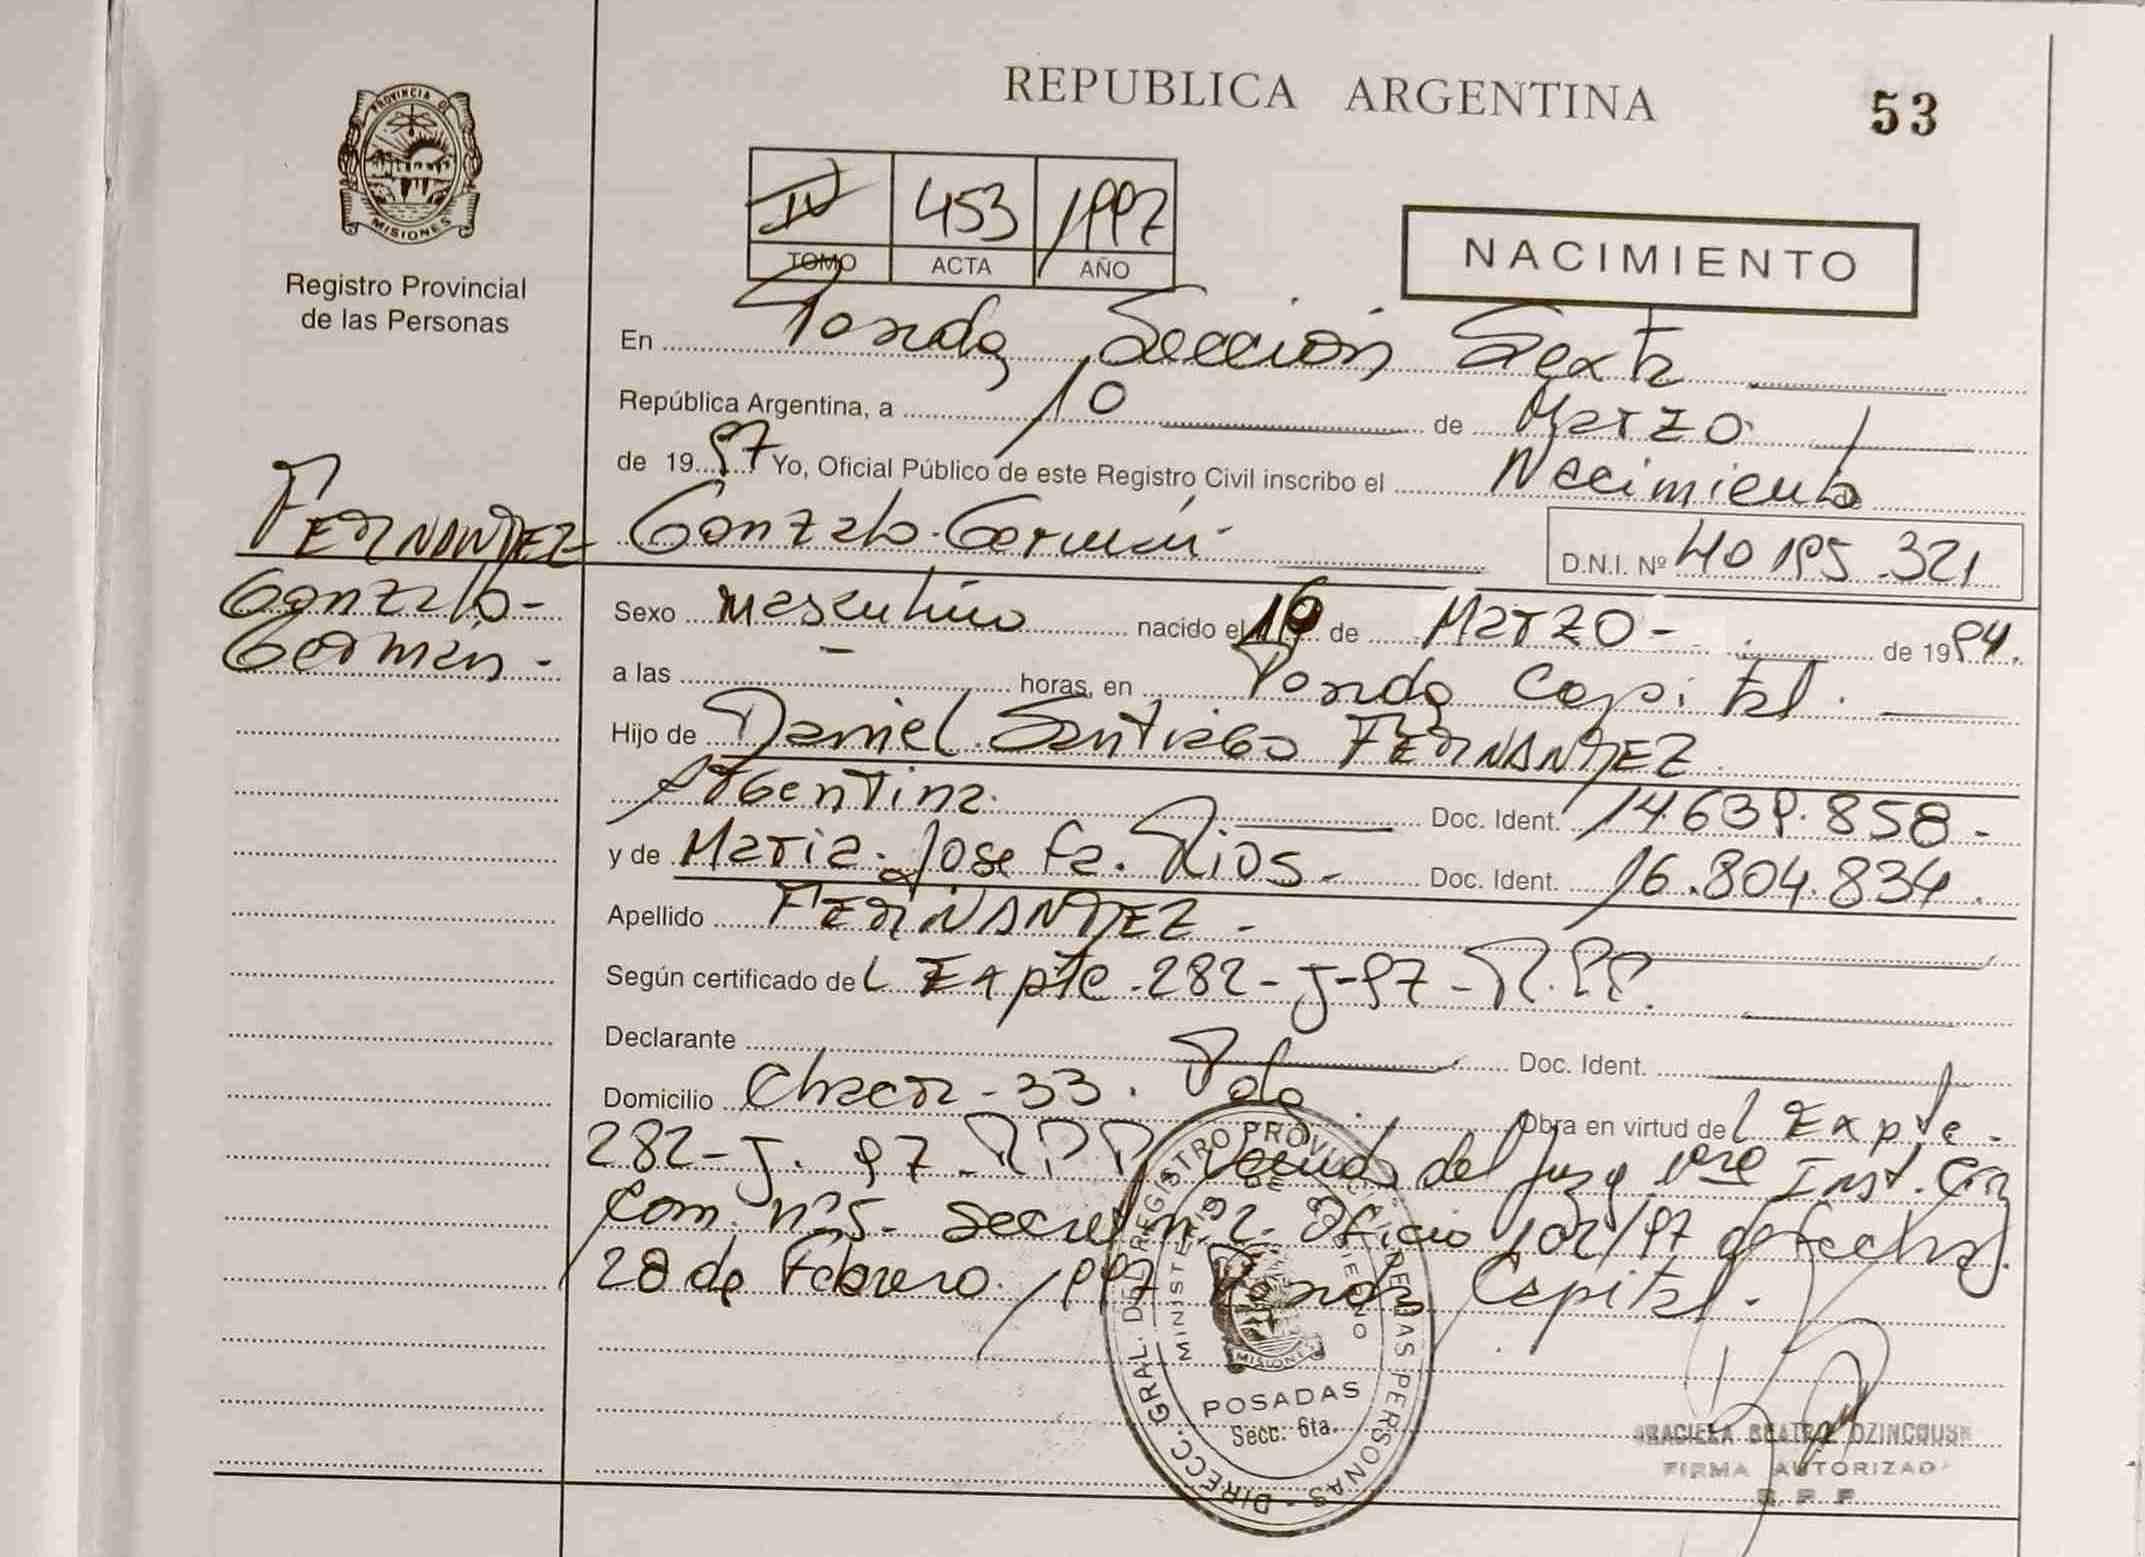 PROVINCIA DE
MISIONES
Registro Provincial
de las Personas
REPUBLICA ARGENTINA
53
IV 453 1997
TOMO ACTA AÑO
NACIMIENTO
En Posadas Sección Sexta
República Argentina, a 10 de Marzo
de 1997 Yo, Oficial Público de este Registro Civil inscribo el Nacimiento de
Gonzalo Germán
D.N.I. Nº 40.195.321
FERNANDEZ
Gonzalo-
Germán-
Sexo masculino nacido el de Marzo- de 1994.
a las - horas, en Posadas Capital.
Hijo de Daniel Santiago FERNANDEZ
Argentina. Doc. Ident. 14.639.858-
y de Maria Josefa Rios- Doc. Ident. 16.804.834
Apellido FERNANDEZ-
Según certificado del Expte-282-J-97-R.P.P.
Declarante Doc. Ident.
Domicilio 33. Obra en virtud del Expte-
282-J. 97-R.P.P. del Juzg 1era Inst. Civ
Com. nº5- Secret nº2- Oficio 102/97 de fecha
28 de Febrero. 1997 Posadas Capital-
DIRECC. GRAL. DEL REGISTRO PROVINCIAL DE LAS PERSONAS
MINISTERIO DE GOBIERNO
MISIONES
POSADAS
Secc. 6ta.
GRACIELA BEATRIZ
FIRMA AUTORIZADA
R. P. P.